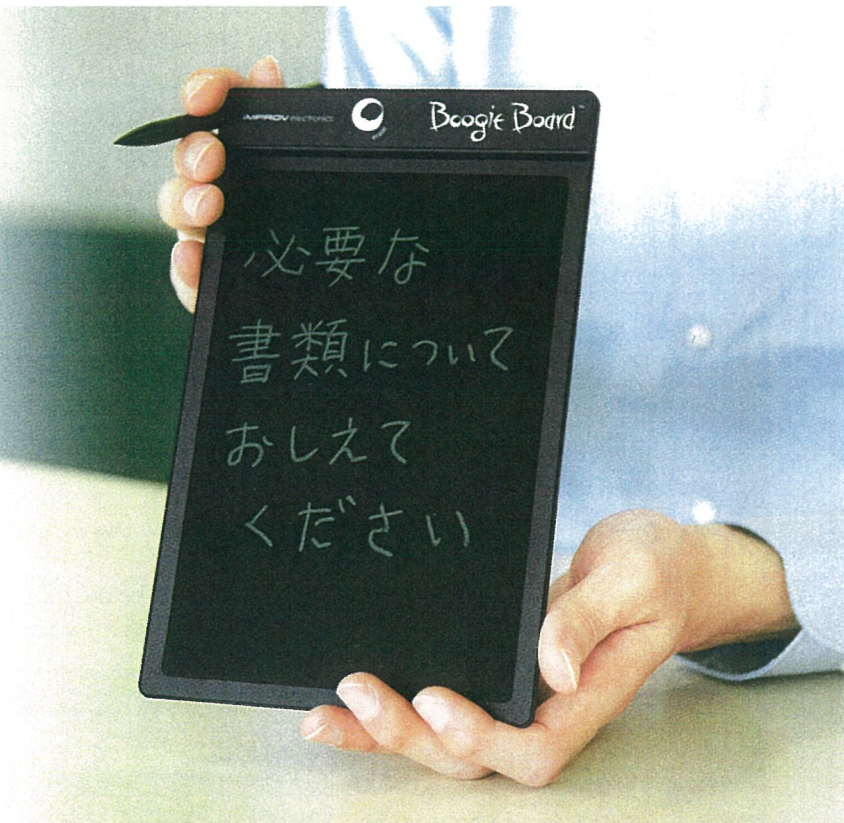 IMPROV electronics
Boogie Board™
erase
必要な
書類について
おしえて
ください